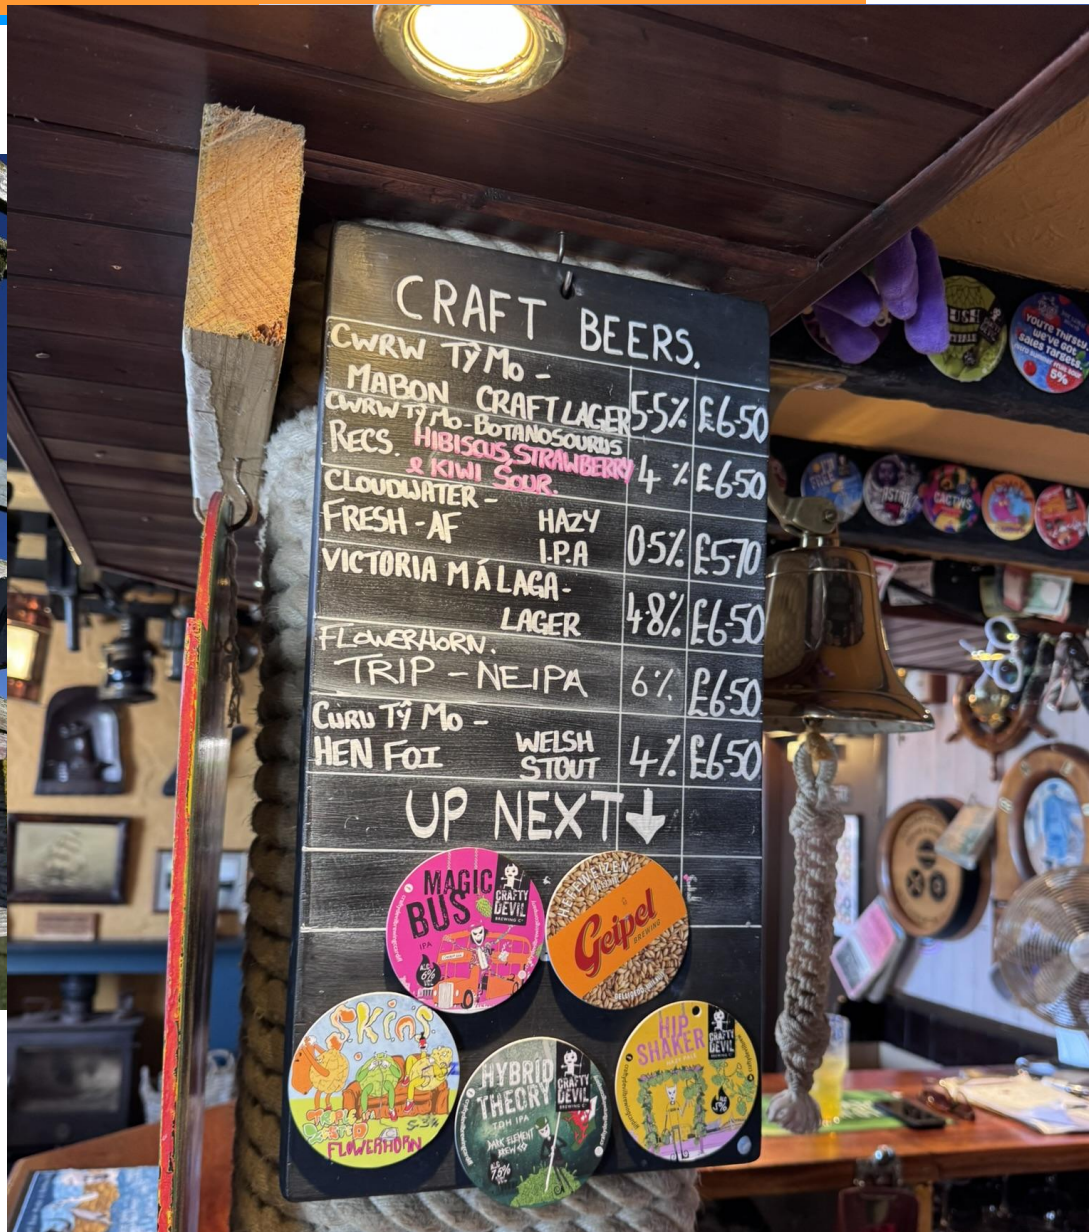 CRAFT BEERS.
CWRW TŶ MO -
MABON CRAFT LAGER 5.5% £6.50
CWRW TŶ MO - BOTANOSOURUS
RECS. HIBISCUS, STRAWBERRY
& KIWI SOUR. 4 % £6.50
CLOUDWATER -
FRESH - AF HAZY
I.P.A 0.5% £5.70
VICTORIA MÁLAGA -
LAGER 4.8% £6.50
FLOWERHORN.
TRIP - NEIPA 6% £6.50
CWRW TŶ MO -
HEN FOI WELSH
STOUT 4% £6.50
UP NEXT
MAGIC
BUS
IPA
6%
CRAFTY
DEVIL
BREWING Cº
HEFEWEIZEN
Geipel
BREWING
SKINS
5.3%
FLOWERHORN
HYBRID
THEORY
TDH IPA
DARK ELEMENT
BREW CO
7.5%
CRAFTY
DEVIL
BREWING Cº
HIP
SHAKER
5%
CRAFTY
DEVIL
YOU'RE THIRSTY.
WE'VE GOT
SALES TARGETS.
5%
CACTUS